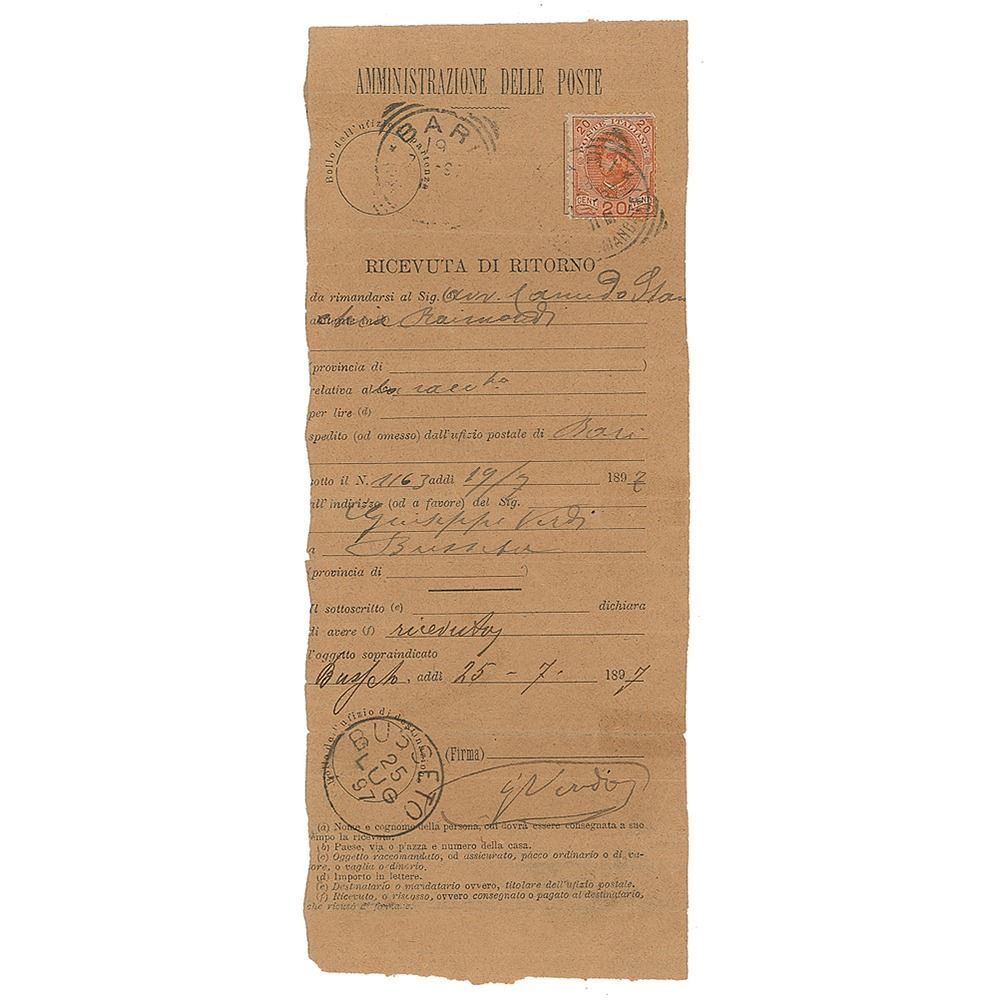 AMMINISTRAZIONE DELLE POSTE
Bollo dell'ufizio partenza
BARI
19
20 POSTE ITALIANE 20
CENT. 20
RICEVUTA DI RITORNO
da rimandarsi al Sig. Avv.
Raimondi
(provincia di )
relativa alla racc ta
per lire (d)
spedito (od omesso) dall'ufizio postale di Bari
sotto il N. 1163 addì 19/7 1897
all'indirizzo (od a favore) del Sig.
Giuseppe Verdi
a Busseto
(provincia di )
Il sottoscritto (e) dichiara
di avere (f) ricevuto
l'oggetto sopraindicato
Busseto, addì 25 - 7 - 1897
Bollo dell'ufizio di destinazione
BUSSETO
25
LUG
97
(Firma)
G Verdi
(a) Nome e cognome della persona, cui dovrà essere consegnata a suo
tempo la ricevuta.
(b) Paese, via o piazza e numero della casa.
(c) Oggetto raccomandato, od assicurato, pacco ordinario o di va-
lore, o vaglia ordinario.
(d) Importo in lettere.
(e) Destinatario o mandatario ovvero, titolare dell'ufizio postale.
(f) Ricevuto, o riscosso, ovvero consegnato o pagato al destinatario,
che ricusò di firmare.